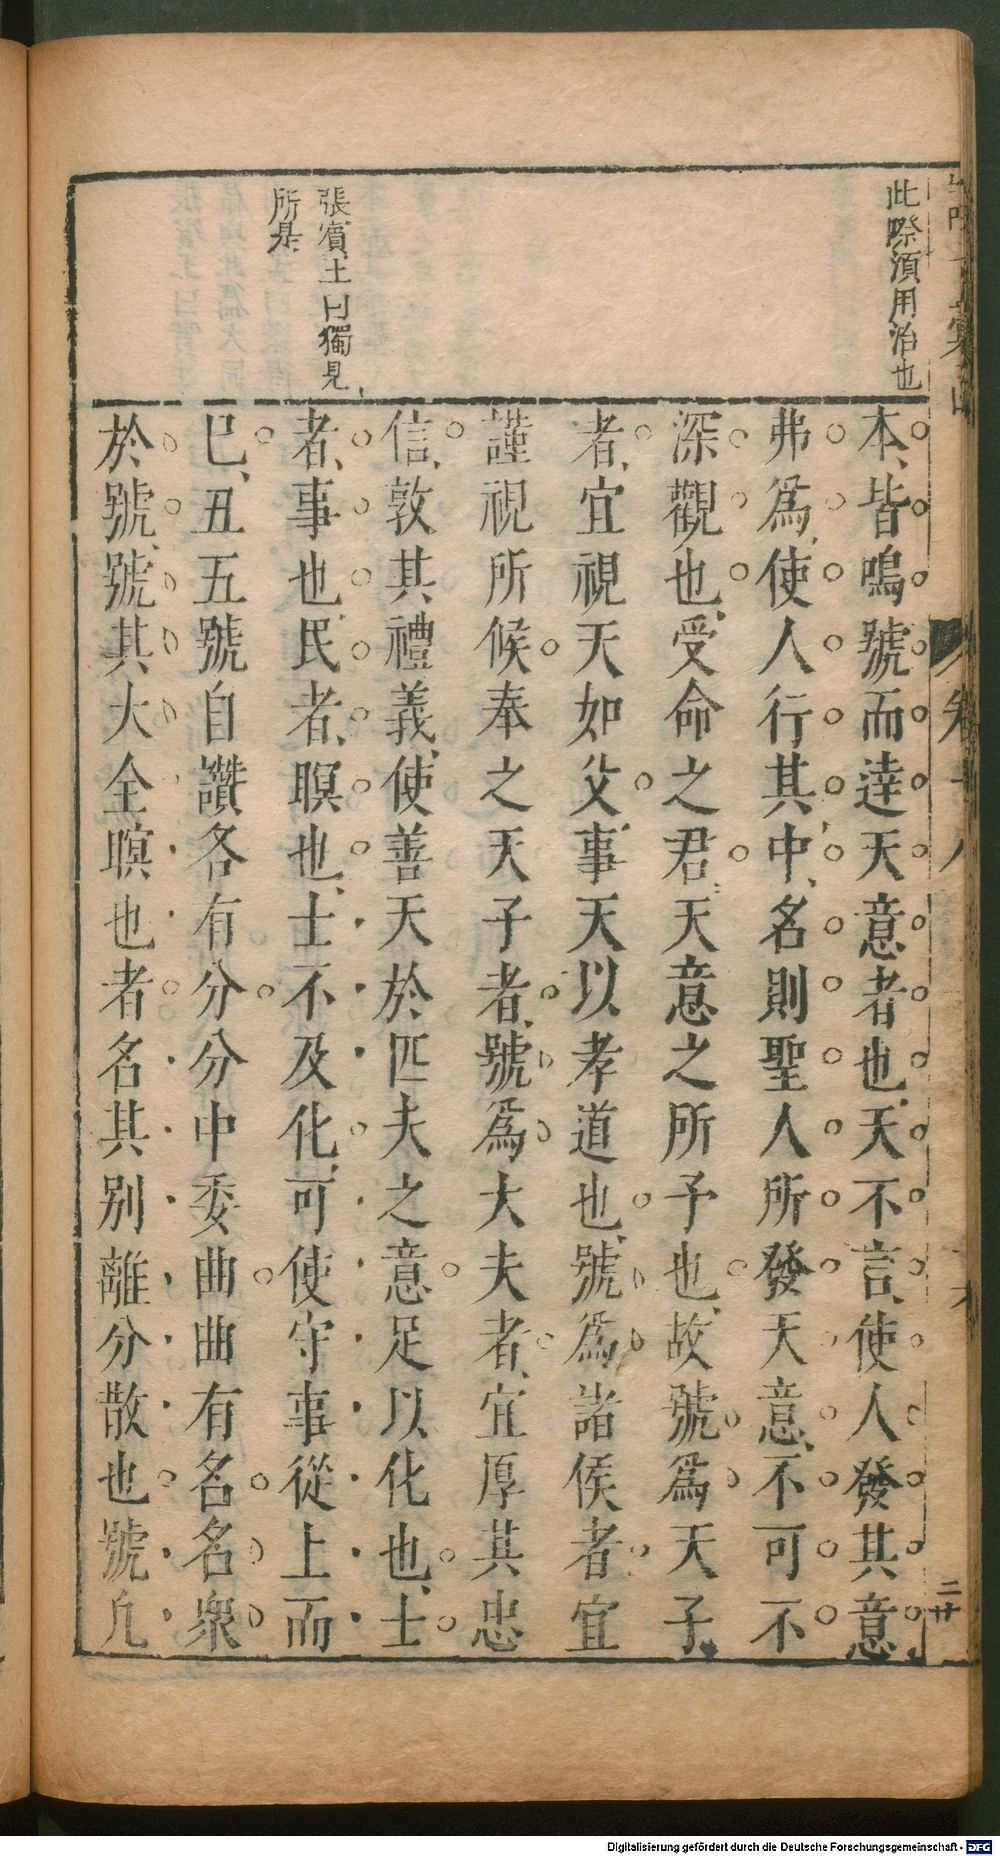 此際須用治也
張賓王曰獨見
所是
本、皆鳴號而達天意者也、天不言、使人發其意
弗爲、使人行其中、名則聖人所發天意、不可不
深觀也、受命之君、天意之所予也、故號爲天子
者、宜視天如父、事天以孝道也、號爲諸侯者宜
謹視所候奉之天子者、號爲大夫者、宜厚其忠
信、敦其禮義、使善天於匹夫之意足以化也、士
者、事也、民者、瞑也、士不及化、可使守事從上而
已、丑五號自讚各有分分中委曲曲有名名衆
於號、號其大全瞑也者名其别離分散也號凡
卷十八
二廿
Digitalisierung gefördert durch die Deutsche Forschungsgemeinschaft - DFG